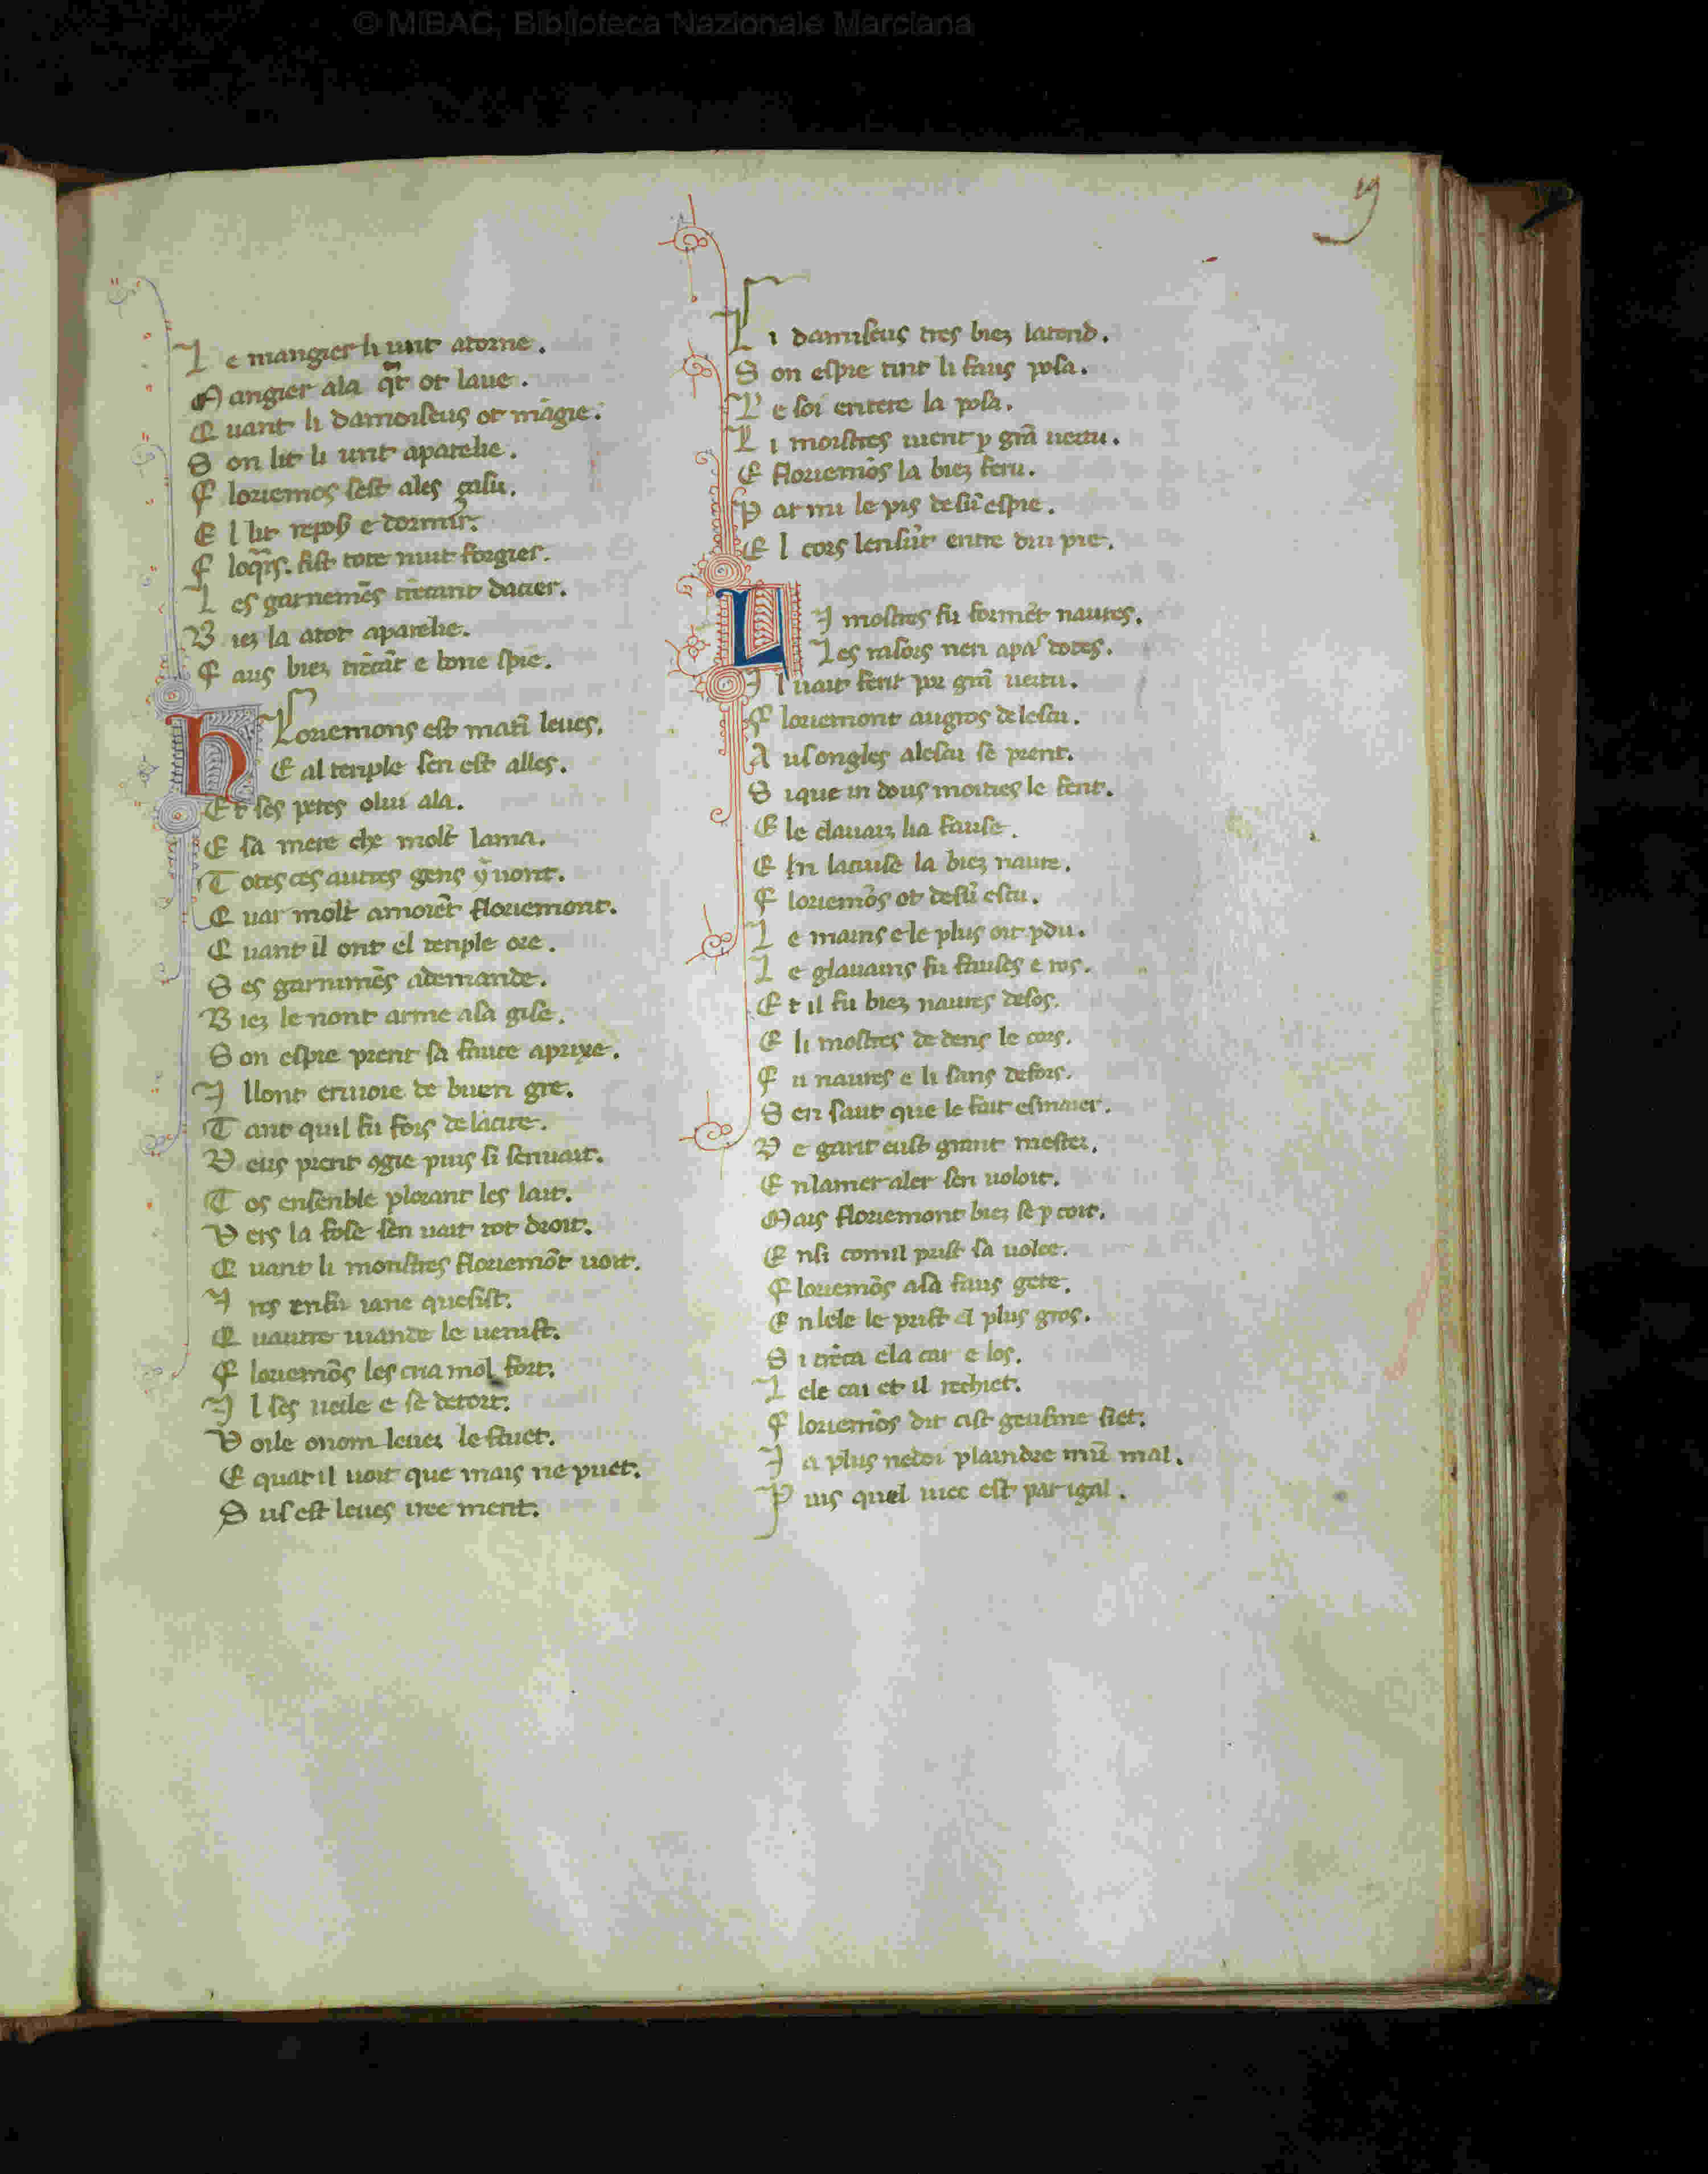 © MiBAC, Biblioteca Nazionale Marciana
19
L e mangier li unt atorne.
M angier ala q̃t ot laue.
Q uant li damoiseus ot mãgie.
S on lit li unt aparelie.
F loriemos sest ales gasir.
E l lit repos e dormir.
F loq̃rs. fist tote nuit forgier.
L es garnemẽs trẽcant dacier.
B iez la atot aparelie.
F aus biez trẽcãt e bone spie.
H Loriemons est matĩ leues.
E al tenple sen est alles.
Et ses peres o lui ala.
E sa mere che molt lama.
T otes ces autres gens y uont.
Q uar molt amoiẽt floriemont.
Q uant il ont el tenple ore.
S es garnimẽs ademande.
B iez le nont arme a sa gise.
S on espie prent sa fauce aprixe.
I llont enuoie de buen gre.
T ant quil fu fors de lacite.
D eus prent ꝯgie puis si senuait.
T os ensenble plorant les lait.
V ers la fose sen uait tot droit.
Q uant li monstres floriemõt uoit.
I res enfu iane quesist.
Q uautre uiande le uenist.
F loriemõs les cria mol fort.
I l ses ueile e se detort.
V oile onom leuer le stuet.
E quat il uoit que mais ne puet.
S us est leues iree ment.
L i damiseus tres biez latend.
S on espie tint li faus posa.
D e soi entere la posa.
L i moistres uient p grã uertu.
E floriemõs la biez feru.
P ar mi le pis desũ espie.
E l cors lensũt entre dui pie.
L I mostres fu formẽt naures.
Les rasois nen apas dotes.
I l uait ferit por grã uertu.
F loriemont augros delescu.
A us ongles alescu se prent.
S ique in dous moities le fent.
E le clauaiz lia fause.
E in lacuise la biez naure.
F loriemõs ot desũ escu.
L e mains e le plus oit pdu.
L e glauains fu fauses e ros.
E t il fu biez naures desos.
E li mostres de dens le cors.
F u naures e li sans defors.
S en saut que le fait esmaier.
D e garit eust grant mestier.
E nlamer aler sen uoloit.
M ais floriemont biez se p coit.
E nsi comil prist sa uolee.
F loriemõs a sa faus gete.
E n lele le prist el plus gros.
S i trẽca ela car e los.
L ele cai et il rechiet.
F loriemõs dit cist geusme siet.
I a plus nedoi plaindre mũ mal.
P uis quel uiec est parigal.